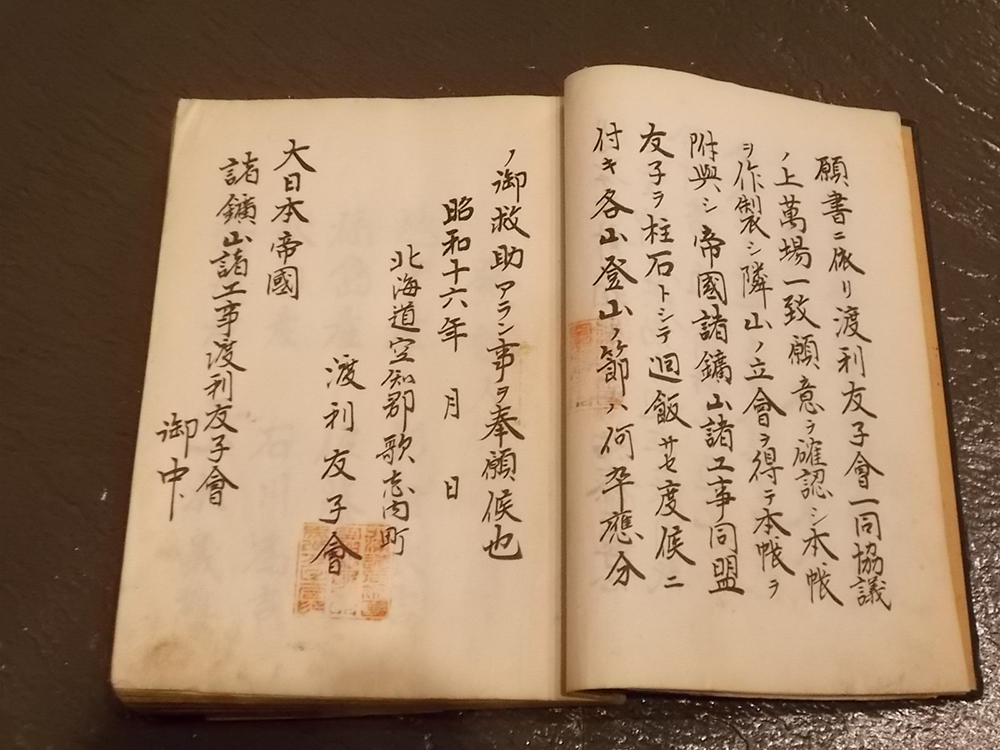 願書ニ依リ渡利友子會一同協議
ノ上萬場一致願意ヲ確認シ本帳
ヲ作製シ隣山ノ立會ヲ得テ本帳ヲ
附與シ帝國諸鑛山諸工事同盟
友子ヲ柱石トシテ廻飯サセ度候ニ
付キ各山登山ノ節ハ何卒應分
ノ御救助アラン事ヲ奉願候也
昭和十六年 月 日
北海道空知郡歌志内町
渡利友子會
大日本帝國
諸鑛山諸工事渡利友子會
御中